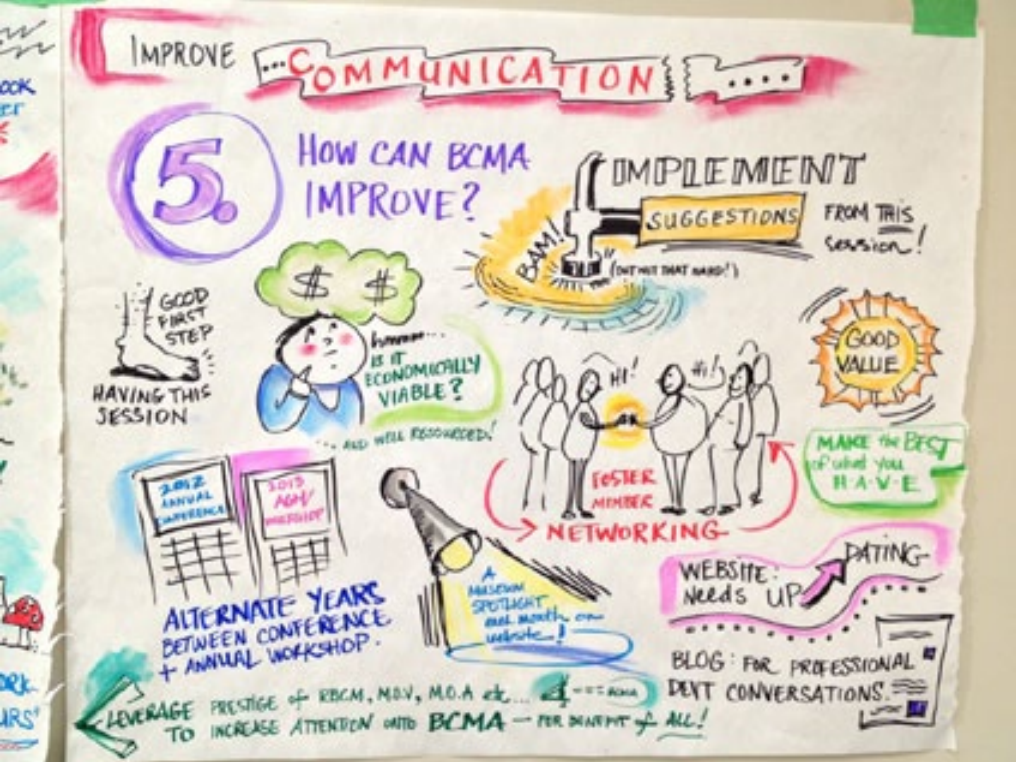 IMPROVE ...COMMUNICATION ....
5.
HOW CAN BCMA
IMPROVE?
IMPLEMENT
SUGGESTIONS
FROM THIS
session!
BAM!
(BUT NOT THAT HARD!)
GOOD
FIRST
STEP
HAVING THIS
SESSION
$ $
hmmm...
IS IT
ECONOMICALLY
VIABLE?
... AND WELL RESOURCED!
HI!
Hi!
FOSTER
MEMBER
NETWORKING
GOOD
VALUE
MAKE the BEST
of what you
H·A·V·E
2012
ANNUAL
CONFERENCE
2013
AGM/
WORKSHOP
ALTERNATE YEARS
BETWEEN CONFERENCE
+ ANNUAL WORKSHOP.
A
MUSEUM
SPOTLIGHT
each month on
website!
WEBSITE:
Needs UP DATING
BLOG: FOR PROFESSIONAL
DEV'T CONVERSATIONS.
LEVERAGE PRESTIGE of RBCM, M.O.V, M.O.A etc... BCMA
TO INCREASE ATTENTION onto BCMA — FOR BENEFIT of ALL!
OOK